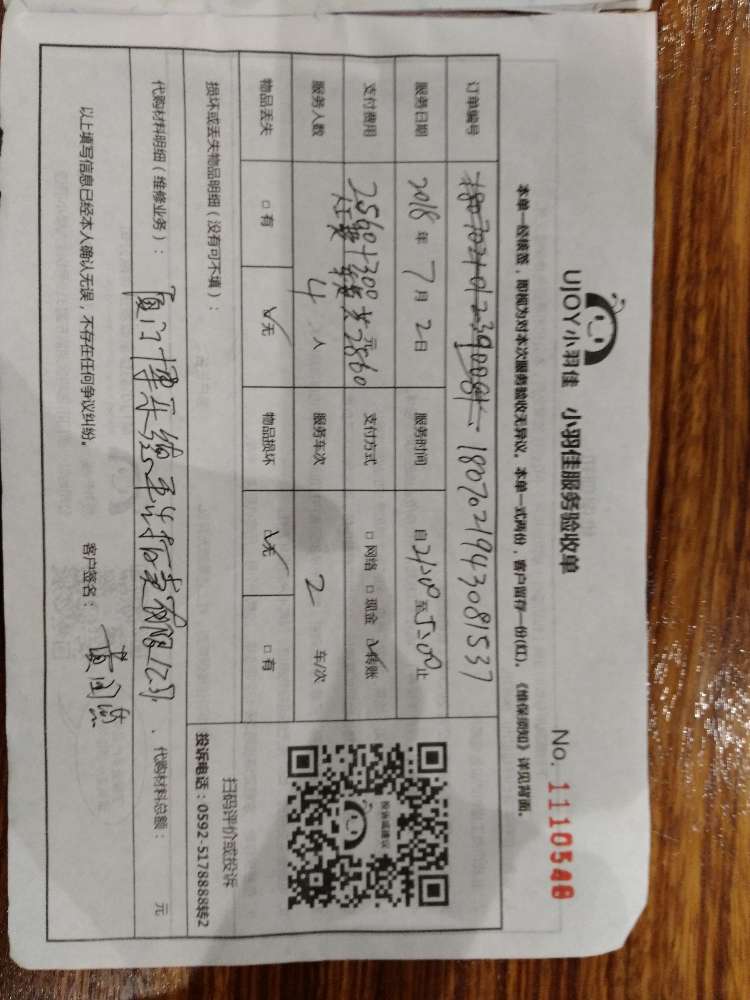 UJOY小羽佳 小羽佳服务验收单
No. 1110548
本单一经核签，即视为对本次服务验收无异议。本单一式两份，客户留存一份(红)。《维保须知》详见背面。
订单编号 1807021943081537
服务日期 2018 年 7 月 2 日 服务时间 自 21:00 至 5:00 止
支付费用 2560+300 共2860 元 支付方式 □ 网络 □ 现金 ☑ 转账
服务人数 4 人 服务车次 2 车/次
物品丢失 □ 有 ☑ 无 物品损坏 ☑ 无 □ 有
损坏或丢失物品明细（没有可不填）：
元
扫码评价或投诉
投诉电话：0592-5178888转2
代购材料明细（维修业务）： 厦门 有限公司 、代购材料总额： 元
以上填写信息已经本人确认无误，不存在任何争议纠纷。 客户签名：
投诉或建议